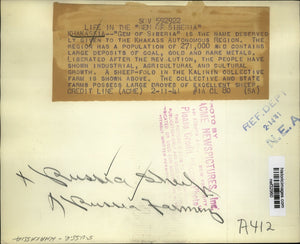 SOV 592922
LIFE IN THE "GEM OF SIBERIA"
KHAKASSIA--"GEM OF SIBERIA" IS THE NAME DESERVEDLY
GIVEN TO THE KHAKASS AUTONOMOUS REGION. THE
REGION HAS A POPULATION OF 271,000 AND CONTAINS
LARGE DEPOSITS OF COAL, GOLD AND RARE METALS.
LIBERATED AFTER THE REVOLUTION, THE PEOPLE HAVE
SHOWN INDUSTRIAL, AGRICULTURAL AND CULTURAL
GROWTH. A SHEEP-FOLD IN THE KALININ COLLECTIVE
FARM IS SHOWN ABOVE. THE COLLECTIVE AND STATE
FARMS POSSESS LARGE DROVES OF EXCELLENT SHEEP.
CREDIT LINE (ACME) 2-11-41
PHOTO BY
ACME NEWSPICTURES, INC.
REF. DEPT
N. E. A.
X Russia Sheep
X Russia Farming
A412